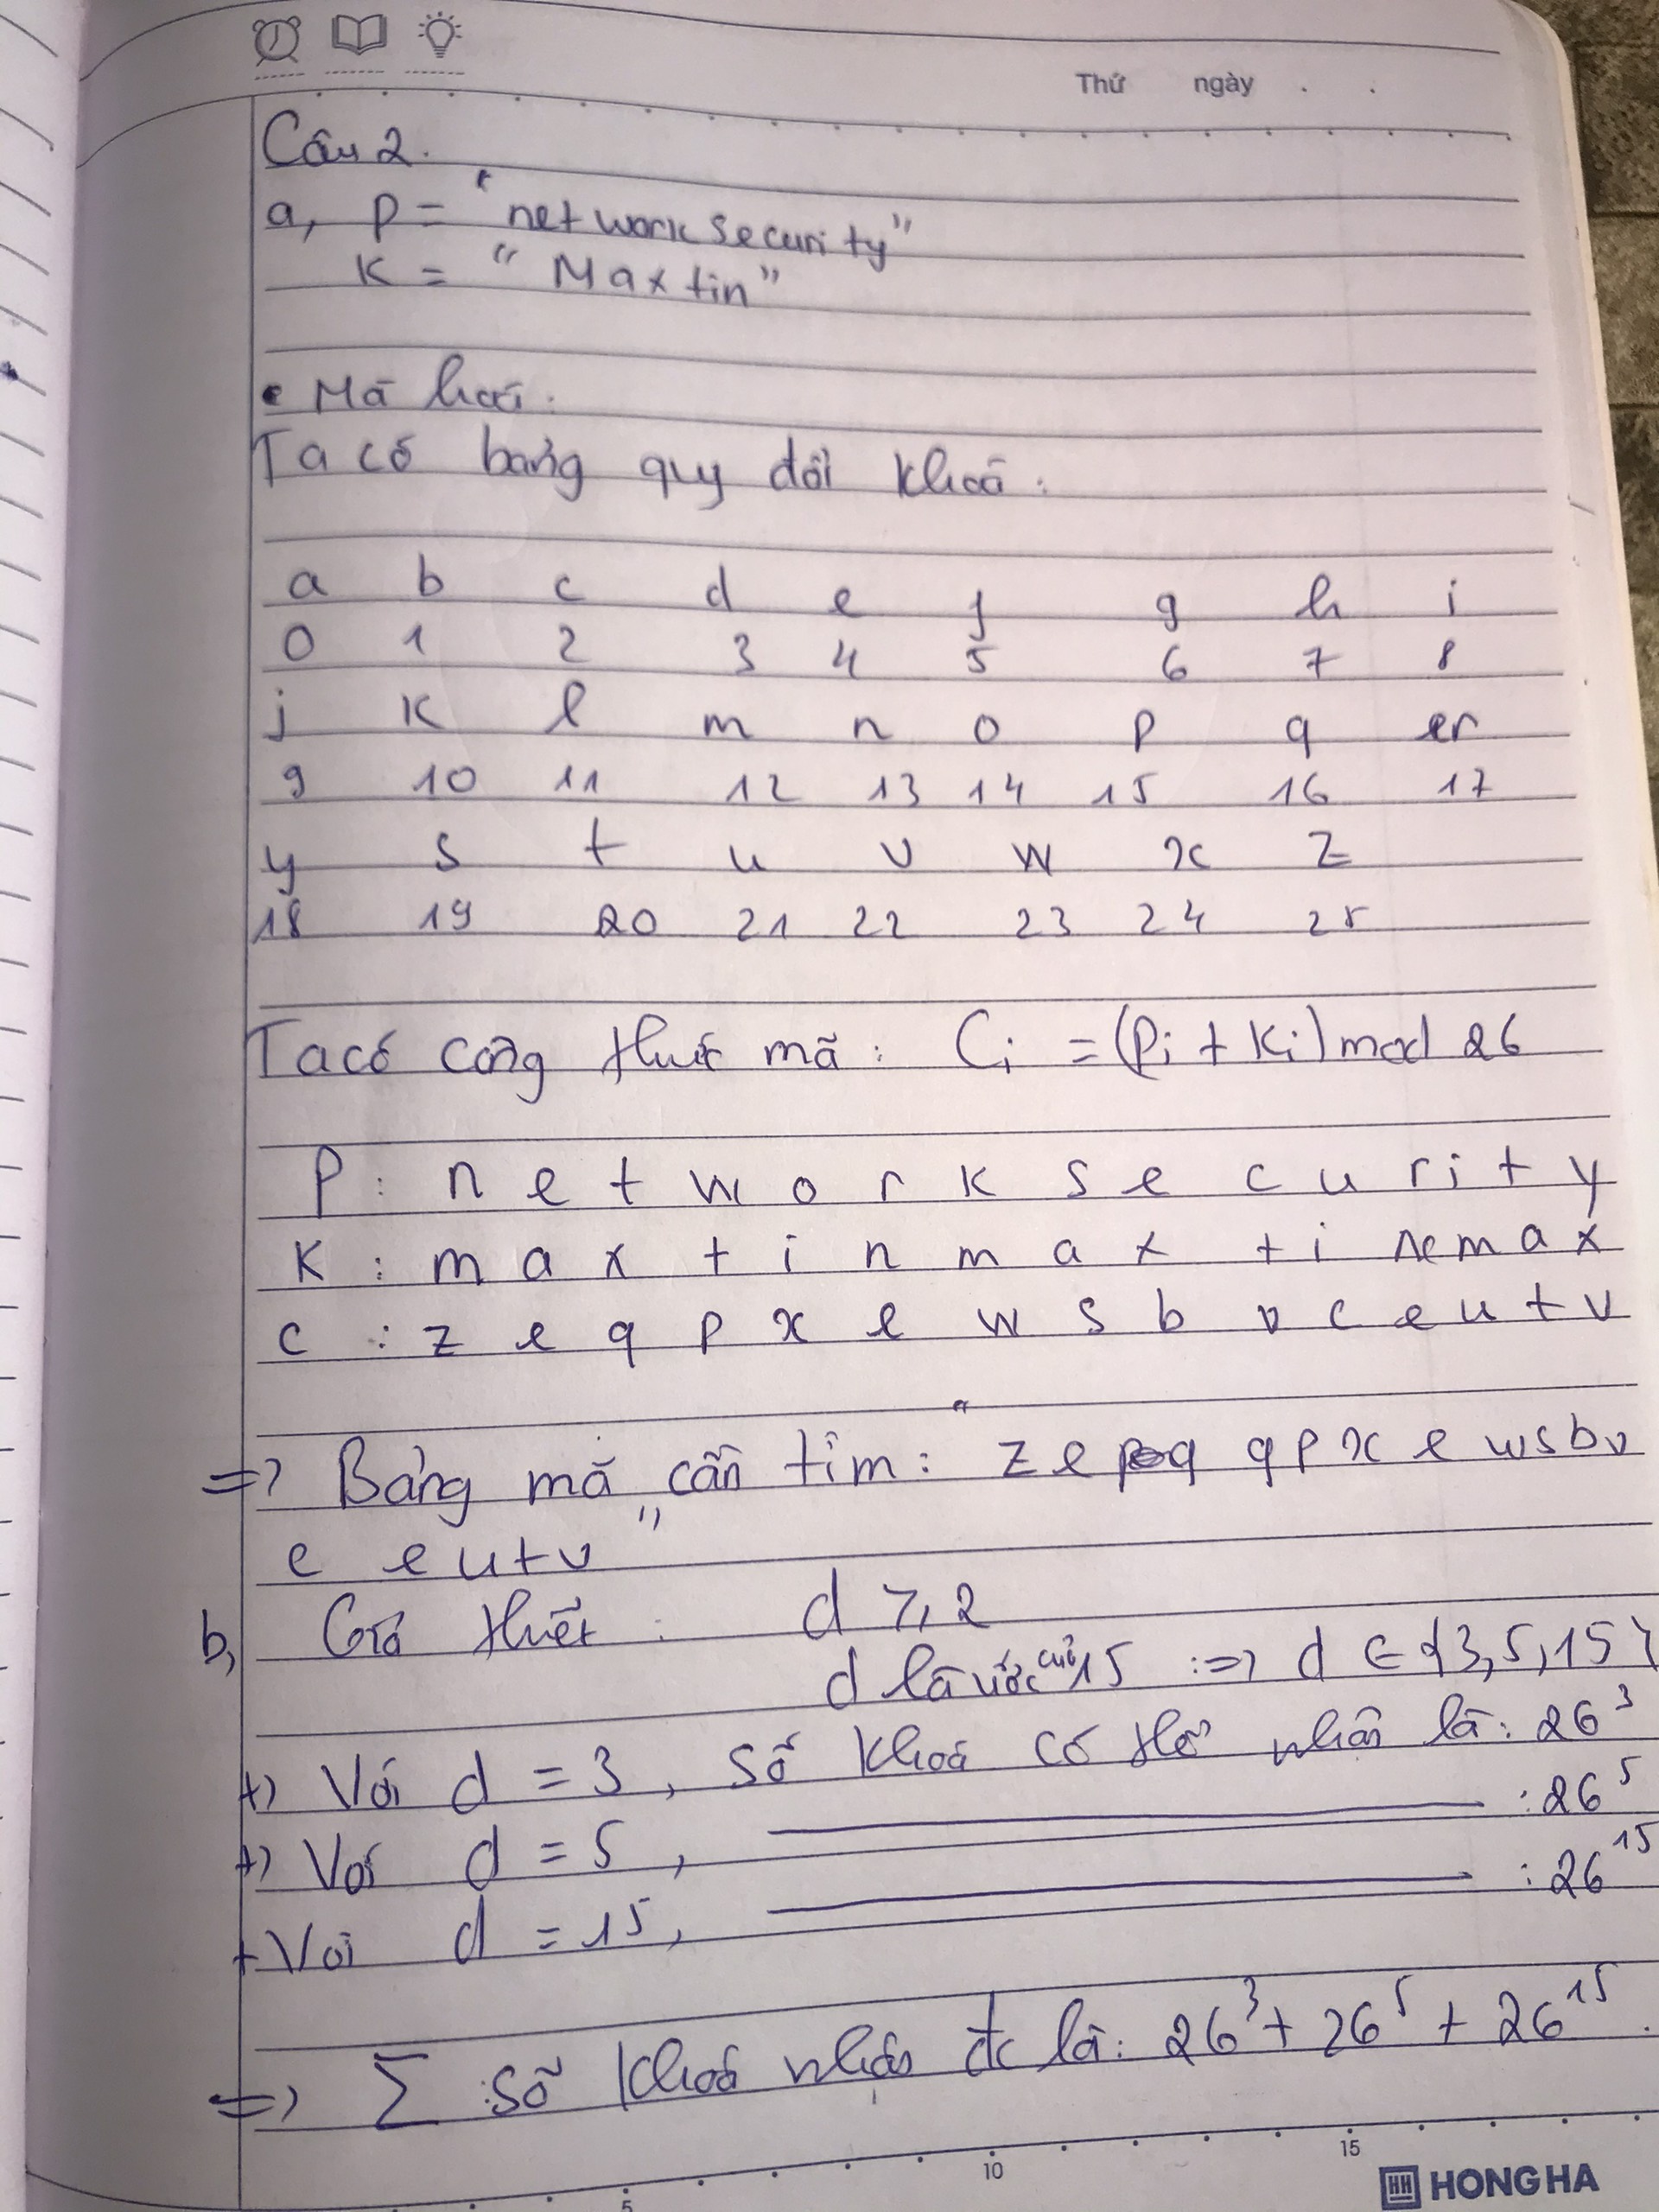 Thứ ngày . .
Câu 2.
a, P = "network security"
K = "Maxtin"
• Mã hoá:
Ta có bảng quy đổi khoá:
a b c d e f g h i
0 1 2 3 4 5 6 7 8
j k l m n o p q r
9 10 11 12 13 14 15 16 17
y s t u v w x z
18 19 20 21 22 23 24 25
Ta có công thức mã: Ci = (Pi + Ki) mod 26
P: n e t w o r k s e c u r i t y
K: m a x t i n m a x t i n m a x
C: z e q p x e w s b v c e u t v
=> Bảng mã cần tìm: "z e q p x e w s b v
c e u t v"
b, Giả thiết: d ⩾ 2
d là ước của 15 => d ∈ {3, 5, 15}
+) Với d = 3, số khoá có thể nhận là: 26³
+) Với d = 5, ——— : 26⁵
+ Với d = 15, ——— : 26¹⁵
=> Σ số khoá nhận đc là: 26³ + 26⁵ + 26¹⁵.
5 10 15
HH HONG HA